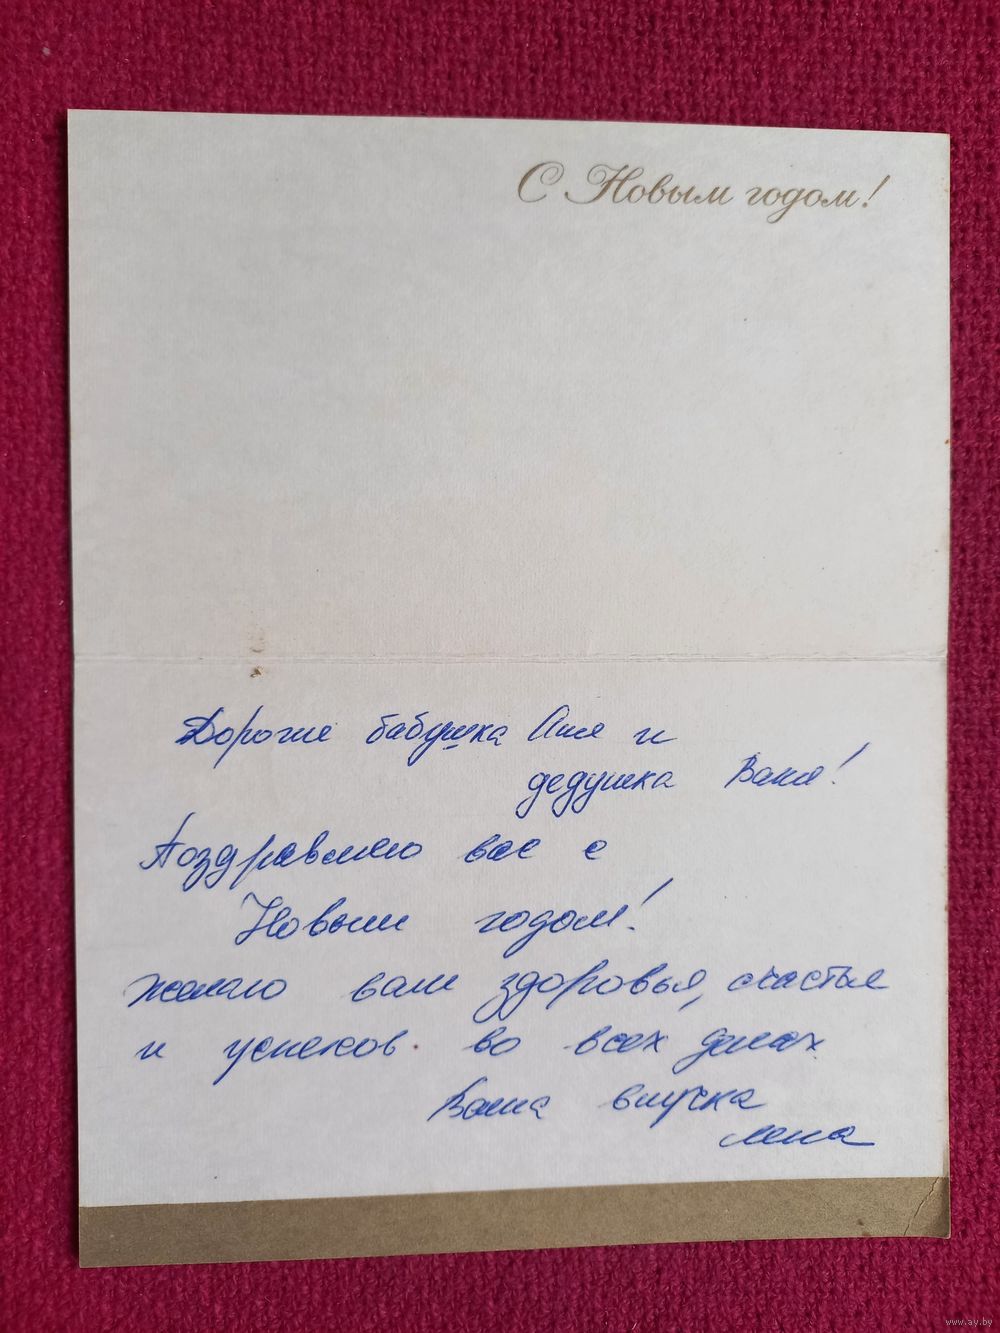 С Новым годом!
Дорогие бабушка Аня и
дедушка Ваня!
Поздравляю вас с
Новым годом!
Желаю вам здоровья, счастья
и успехов во всех делах
Ваша внучка
Лена
www.ay.by